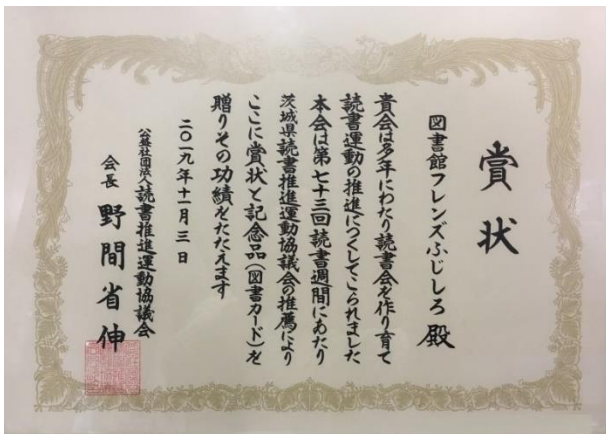 賞状
図書館フレンズふじしろ 殿
貴会は多年にわたり読書会を作り育て
読書運動の推進につくしてこられました
本会は第七十三回読書週間にあたり
茨城県読書推進運動協議会の推薦により
ここに賞状と記念品（図書カード）を
贈りその功績をたたえます
二〇一九年十一月三日
公益社団法人読書推進運動協議会
会長 野間省伸